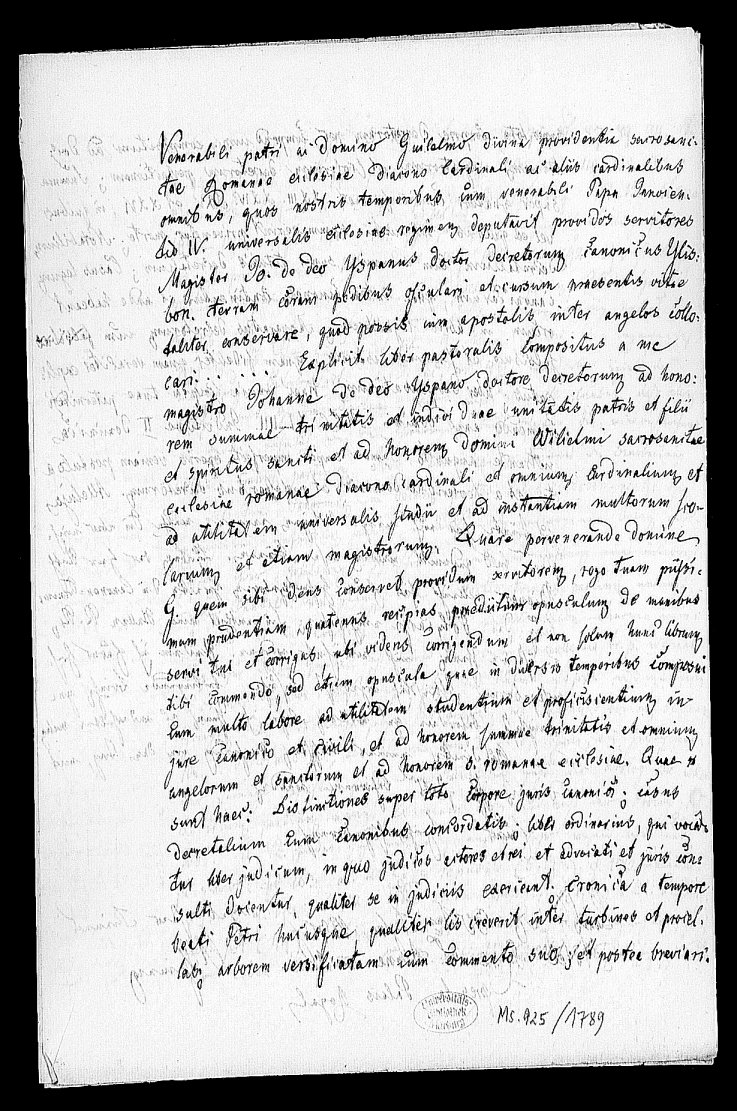 Venerabili patri, ac Domino Guilelmo, divina providentia sacrosanc-
tae Romanae ecclesiae Diacono Cardinali ac aliis cardinalibus
omnibus, quos nostris temporibus cum venerabili Papa Innocen-
tio IV. universalis ecclesiae regimen deputavit providos servitores
Magister Jo. de deo Yspanus doctor decretorum canonicus Ulis:
bon. terram coram pedibus osculari et cursum praesentis vitae
taliter conservare, quod possis cum apostolis inter angelos collo-
cari. . . . . . . Explicit liber pastoralis compositus a me
magistro Johanne de deo Yspano doctore decretorum ad hono:
rem summae trinitatis et individuae unitatis patris et filii
et spiritus sancti et ad honorem domini Wilielmi sacrosanctae
ecclesiae romanae Diacono cardinali et omnium Cardinalium et
ad utilitatem universalis studii et ad instantiam multorum sco-
larium et etiam magistrorum. Quare pervenerande domine
G. quem sibi deus conservet providum servitorem, rogo tuam piissi-
mam prudentiam, quatenus recipias praedictum opusculum de manibus
servi tui et corrigas, ubi videris corrigendum et non solum hunc librum
tibi commendo, sed etiam opuscula, quae in diversis temporibus composui
cum multo labore ad utilitatem studentium et proficiscientium in
jure canonico et civili, et ad honorem summae trinitatis et omnium
angelorum et sanctorum et ad honorem s. romanae ecclesiae. Quae
sunt haec: Distinctiones super toto corpore juris canonici; casus
decretalium cum canonibus concordatis; liber ordinarius, qui voca-
tur liber judicum, in quo judices actores et rei et advocati et juris con:
sulti docentur, qualiter se in judiciis exerceant. Cronica a tempore
beati Petri hucusque, qualiter lis creverit inter turbines et procel-
las; arborem versificatam cum commento suo; et postea breviari-
Ms. 925/1789